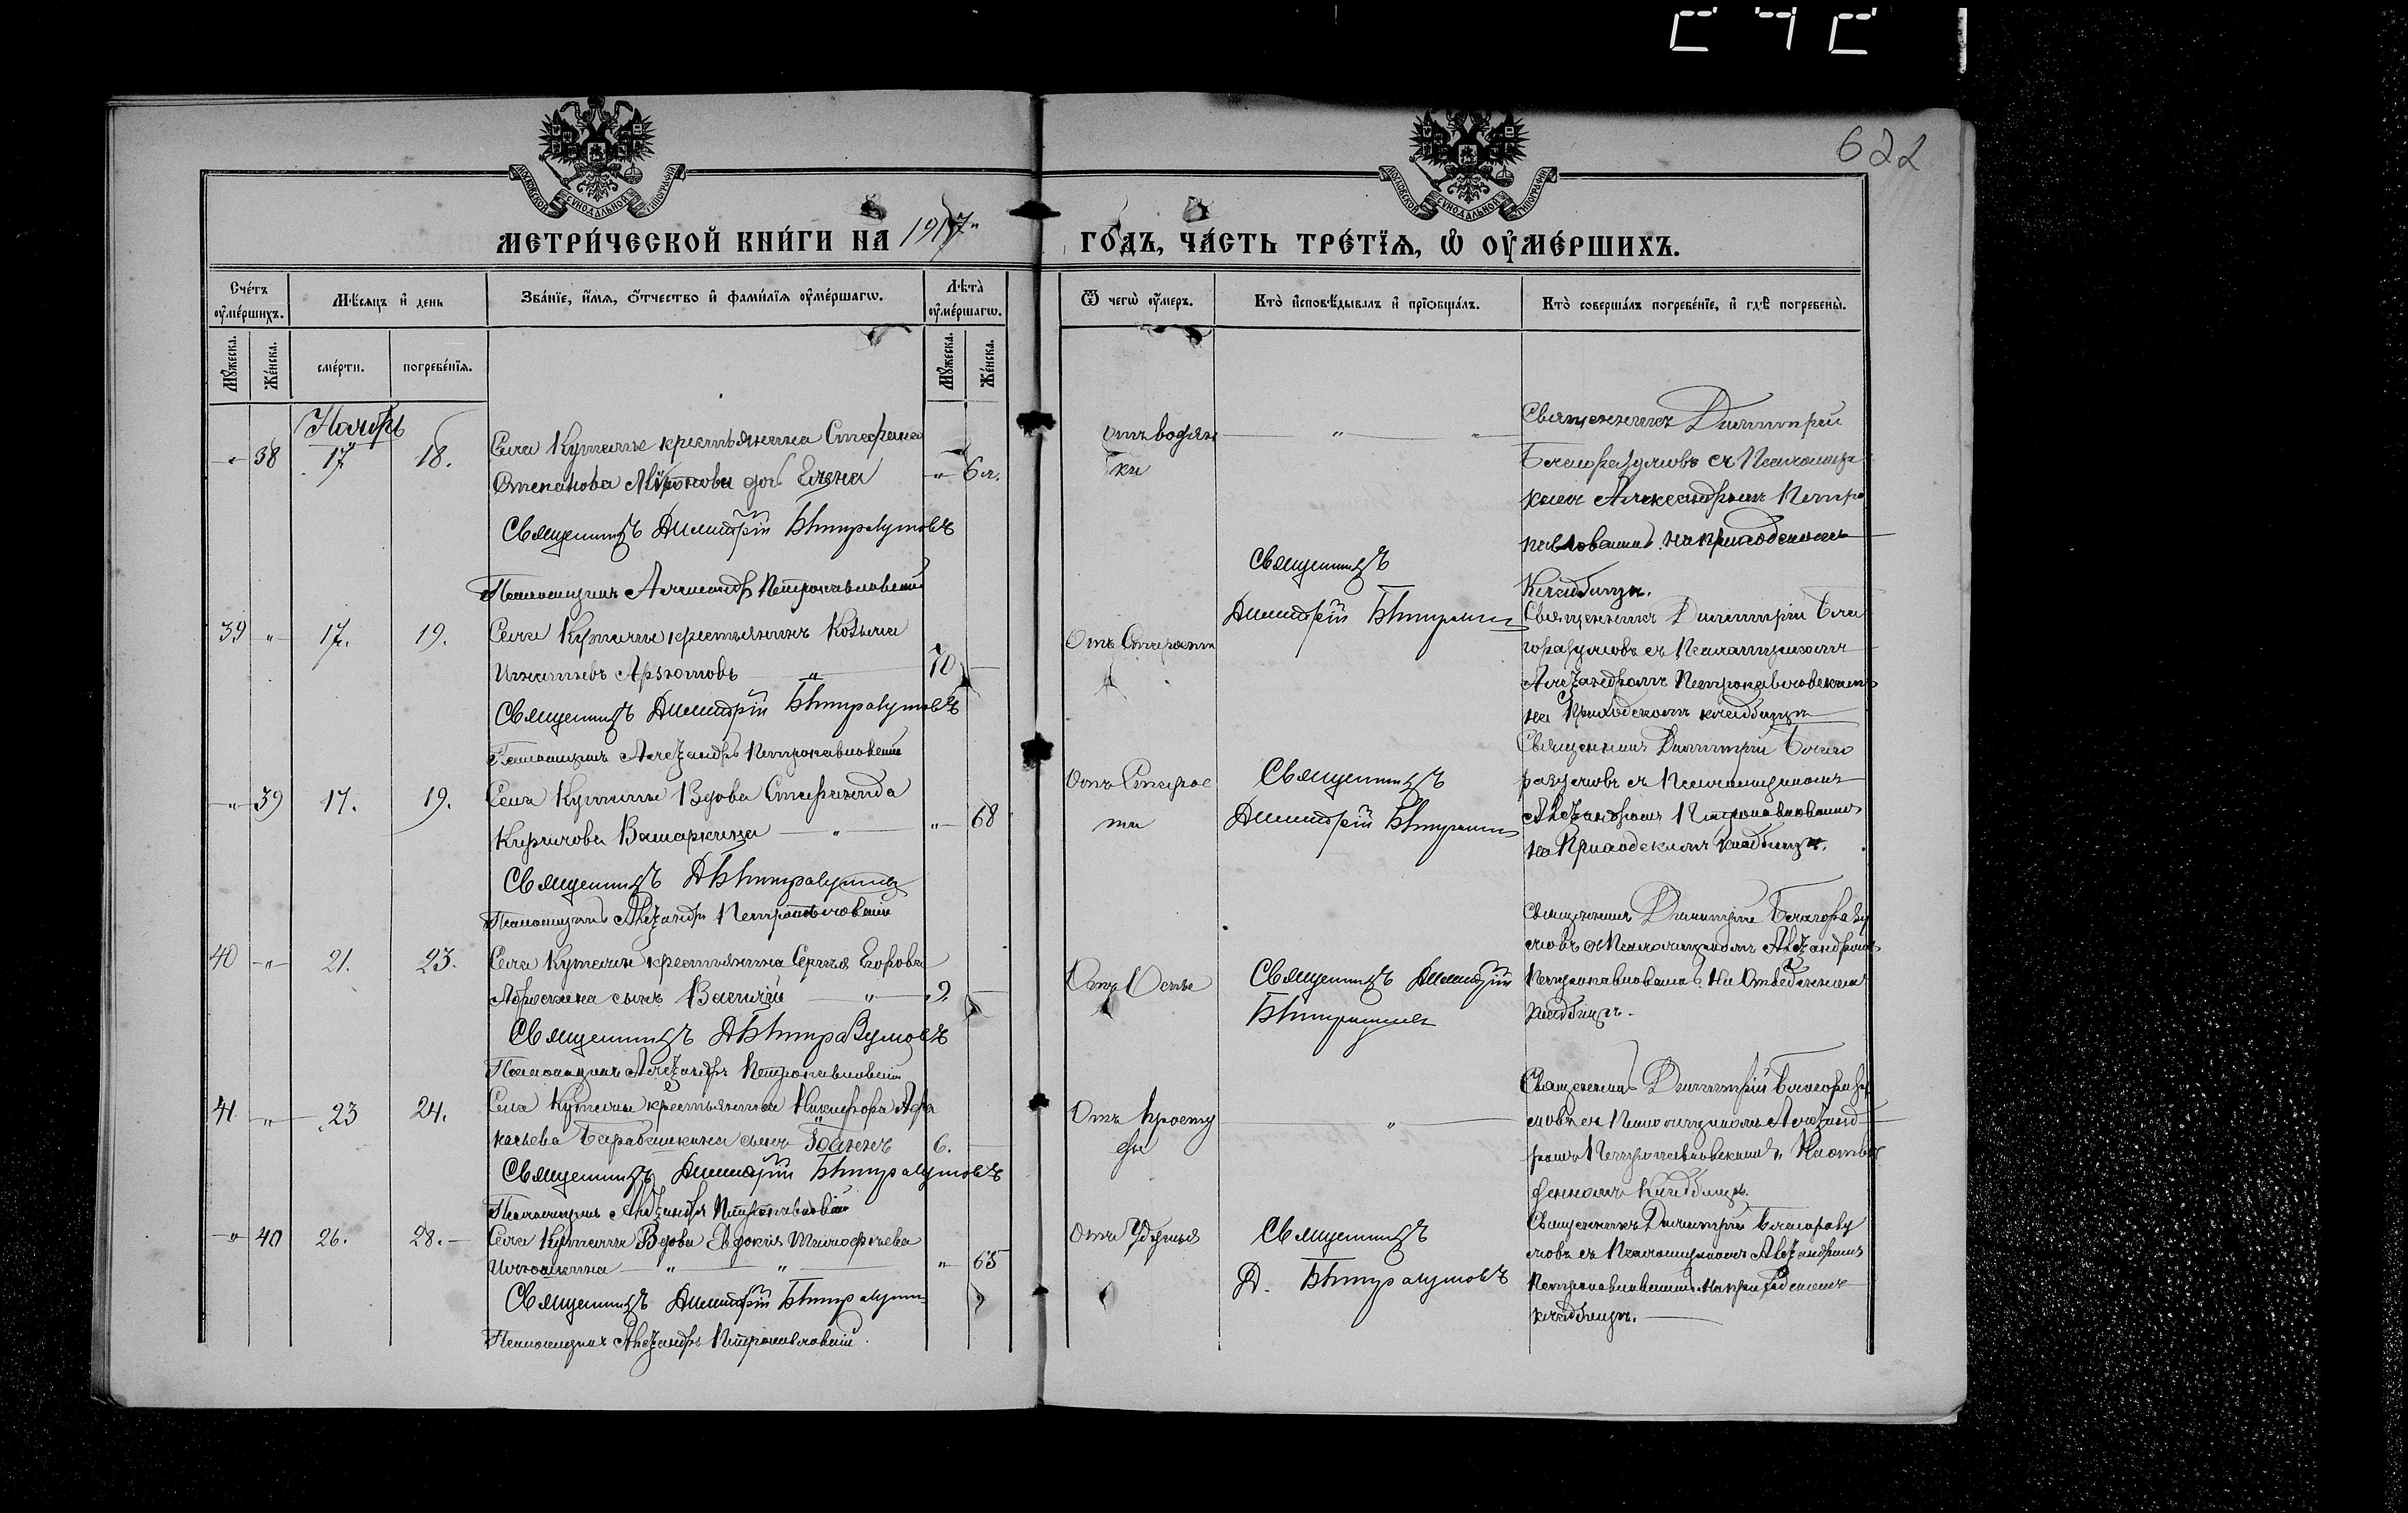 622
МОСКОВСКОЙ СѴНОДАЛЬНОЙ ТИПОГРАФІИ
МОСКОВСКОЙ СѴНОДАЛЬНОЙ ТИПОГРАФІИ
МЕТРИ́ЧЕСКОЙ КНИ́ГИ НА 1917 ГО́ДЪ, ЧА́СТЬ ТРЕ́ТЇѦ, Ѡ҆ ОУ҆МЕ́РШИХЪ.
Сче́тъ оу҆ме́ршихъ.
Мѣ́сѧцъ и҆ день
Зва́нїе, и҆́мѧ, ѻ҆́тчество и҆ фами́лїѧ оу҆ме́ршагѡ.
Лѣ́та оу҆ме́ршагѡ.
Ѿ чегѡ̀ оу҆́меръ.
Кто̀ и҆сповѣ́дывалъ и҆ прїѡбща́лъ.
Кто̀ соверша́лъ погребе́нїе, и҆ гдѣ̀ погребены̀.
Мꙋ́жеска.
Же́нска.
сме́рти.
погребе́нїѧ.
Мꙋ́жеска.
Же́нска.
Ноябрь
" 38 17 18.
Села Кутли крестьянина Стефана
Степанова дочь Елена " 6 л.
Священникъ Димитрій Благоразумовъ
Псаломщикъ Александръ Петропавловскій
отъ водян
ки
Священникъ Димитрій
Благоразумовъ съ Псаломщи
комъ Александромъ Петро
павловскимъ на приходскомъ
кладбищѣ.
39 " 17. 19.
Села крестьянинъ Козьма
Игнатьевъ " 70
Священникъ Димитрій Благоразумовъ
Псаломщикъ Александръ Петропавловскій
Отъ Старости
Священникъ
Димитрій Благоразумовъ
Священникъ Димитрій Благ
оразумовъ съ Псаломщикомъ
Александромъ Петропавловскимъ
на Приходскомъ кладбищѣ
" 39 17. 19.
Села Вдова Стефанида
Кирилова " " 68
Священникъ Д Благоразумовъ
Псаломщикъ Александръ Петропавловскій
Отъ Старос
ти
Священникъ
Димитрій Благоразумовъ
Священникъ Димитрій Благо
разумовъ съ Псаломщикомъ
Александромъ Петропавловскимъ
на Приходскомъ кладбищѣ.
40 " 21. 23.
Села крестьянина Сергія Егорова
сынъ Василій " 9
Священникъ Д Благоразумовъ
Псаломщикъ Александръ Петропавловскій
Отъ Оспы
Священникъ Димитрій
Благоразумовъ
Священникъ Димитрій Благоразу
мовъ съ Псаломщикомъ Александромъ
Петропавловскимъ. На Отведенномъ
кладбищѣ.
41 " 23 24.
Села крестьянина Никифора Афа
насьева Барабашкина сынъ Іоаннъ 6.
Священникъ Димитрій Благоразумовъ
Псаломщикъ Александръ Петропавловскій
Отъ Просту
ды
"
Священникъ Димитрій Благоразу
мовъ съ Псаломщикомъ Александ
ромъ Петропавловскимъ На отве
денномъ кладбищѣ.
" 40 26. 28.
Села Вдова Евдокія Тимофѣева
" " " 65
Священникъ Димитрій Благоразумовъ
Псаломщикъ Александръ Петропавловскій
Отъ Удушья
Священникъ
Д. Благоразумовъ
Священникъ Димитрій Благоразу
мовъ съ Псаломщикомъ Александромъ
Петропавловскимъ на приходскомъ
кладбищѣ.